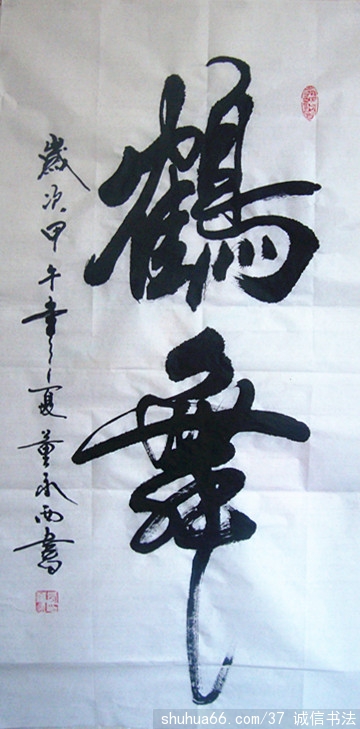 鶴舞
歲次甲午季夏董永西書
shuhua66.com/37 诚信书法